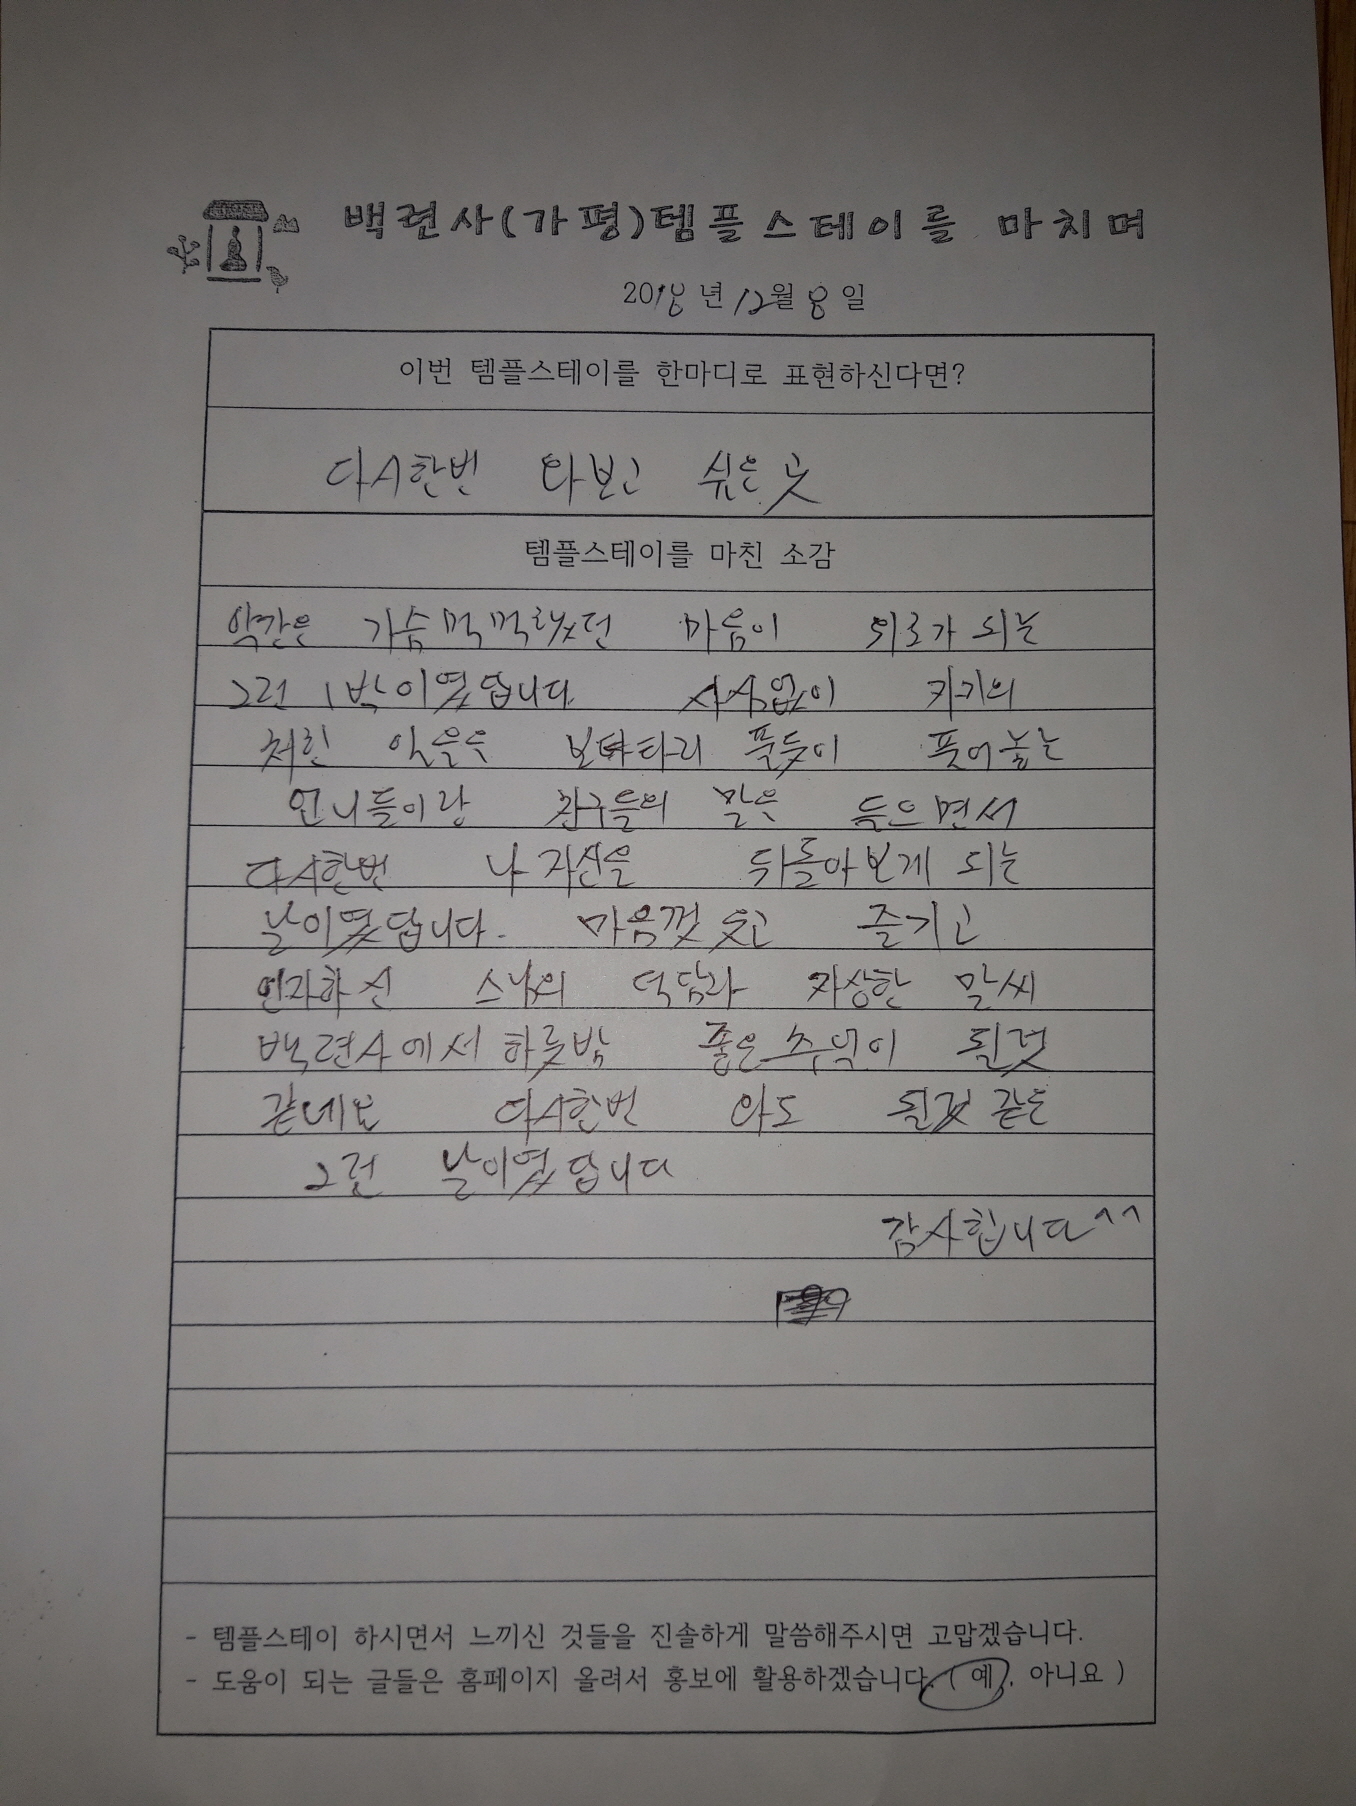 백련사(가평)템플스테이를 마치며
2018년 12월 8일
이번 템플스테이를 한마디로 표현하신다면?
다시한번 와보고 싶은곳
템플스테이를 마친 소감
약간은 가슴먹먹했던 마음이 위로가 되는
그런 1박이였답니다. 사심없이 각기의
처한 일들을 보따리 풀듯이 풀어놓는
언니들이랑 친구들의 말을 들으면서
다시한번 나 자신을 뒤돌아보게 되는
날이였답니다. 마음껏 웃고 즐기고
인자하신 스님의 덕담과 자상한 말씨
백련사에서 하룻밤 좋은추억이 될것
같네요 다시한번 와도 될것 같은
그런 날이였답니다
감사합니다^^
- 템플스테이 하시면서 느끼신 것들을 진솔하게 말씀해주시면 고맙겠습니다.
- 도움이 되는 글들은 홈페이지 올려서 홍보에 활용하겠습니다.( 예, 아니요 )